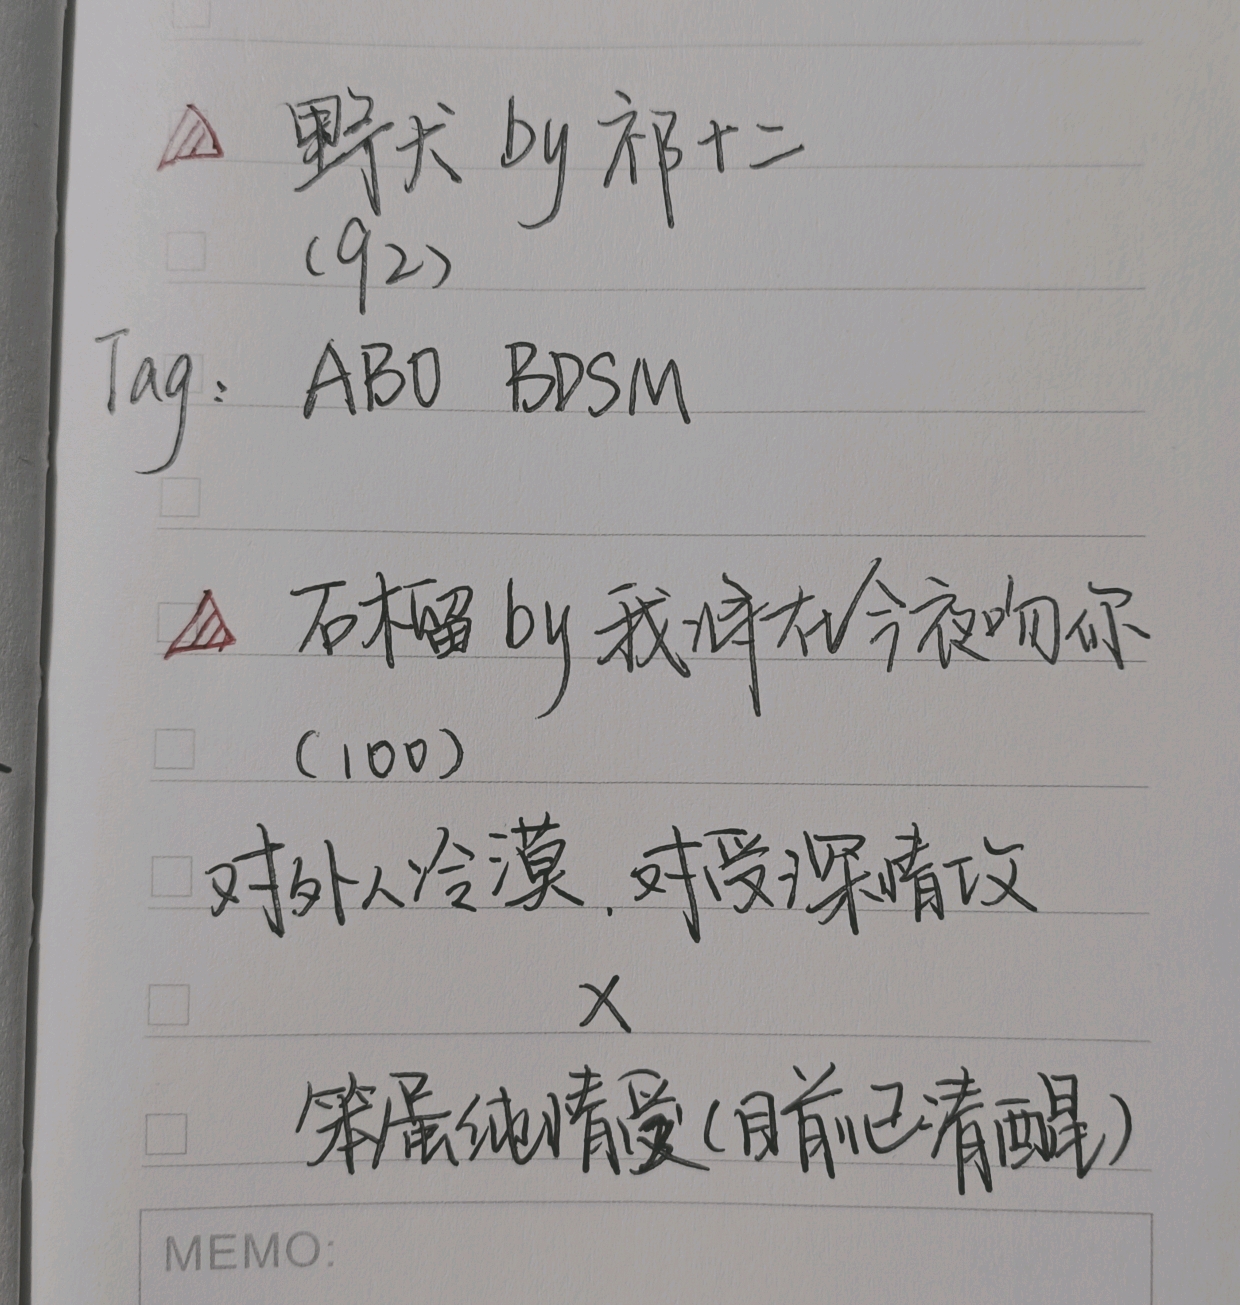 野犬 by 祁十二
(92)
Tag: ABO BDSM
石榴 by 我将在今夜吻你
(100)
对外人冷漠,对受深情攻
X
笨蛋纯情受(目前已清醒)
MEMO: